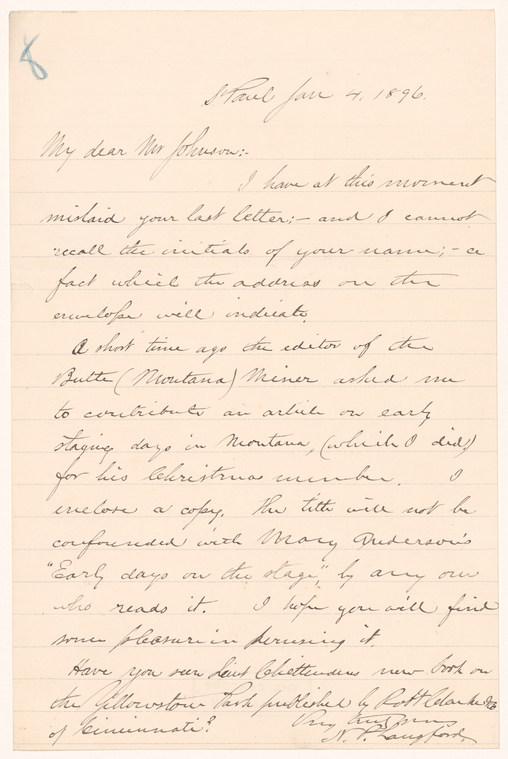 8
St Paul Jan 4. 1896.
My dear Mr Johnson:-
I have at this moment
mislaid your last letter;- and I cannot
recall the initials of your name;- a
fact which the address on the
envelope will indicate.
A short time ago the editor of the
Butte (Montana) Miner asked me
to contribute an article on early
staging days in Montana, (which I did,)
for his Christmas number. I
inclose a copy. The title will not be
confounded with Mary Anderson's
"Early days on the stage", by any one
who reads it. I hope you will find
some pleasure in perusing it.
Have you seen Lieut Chittendens new book on
the Yellowstone Park published by Robt Clarke & Co
of Cincinnati?
Very truly yours
N. P. Langford.